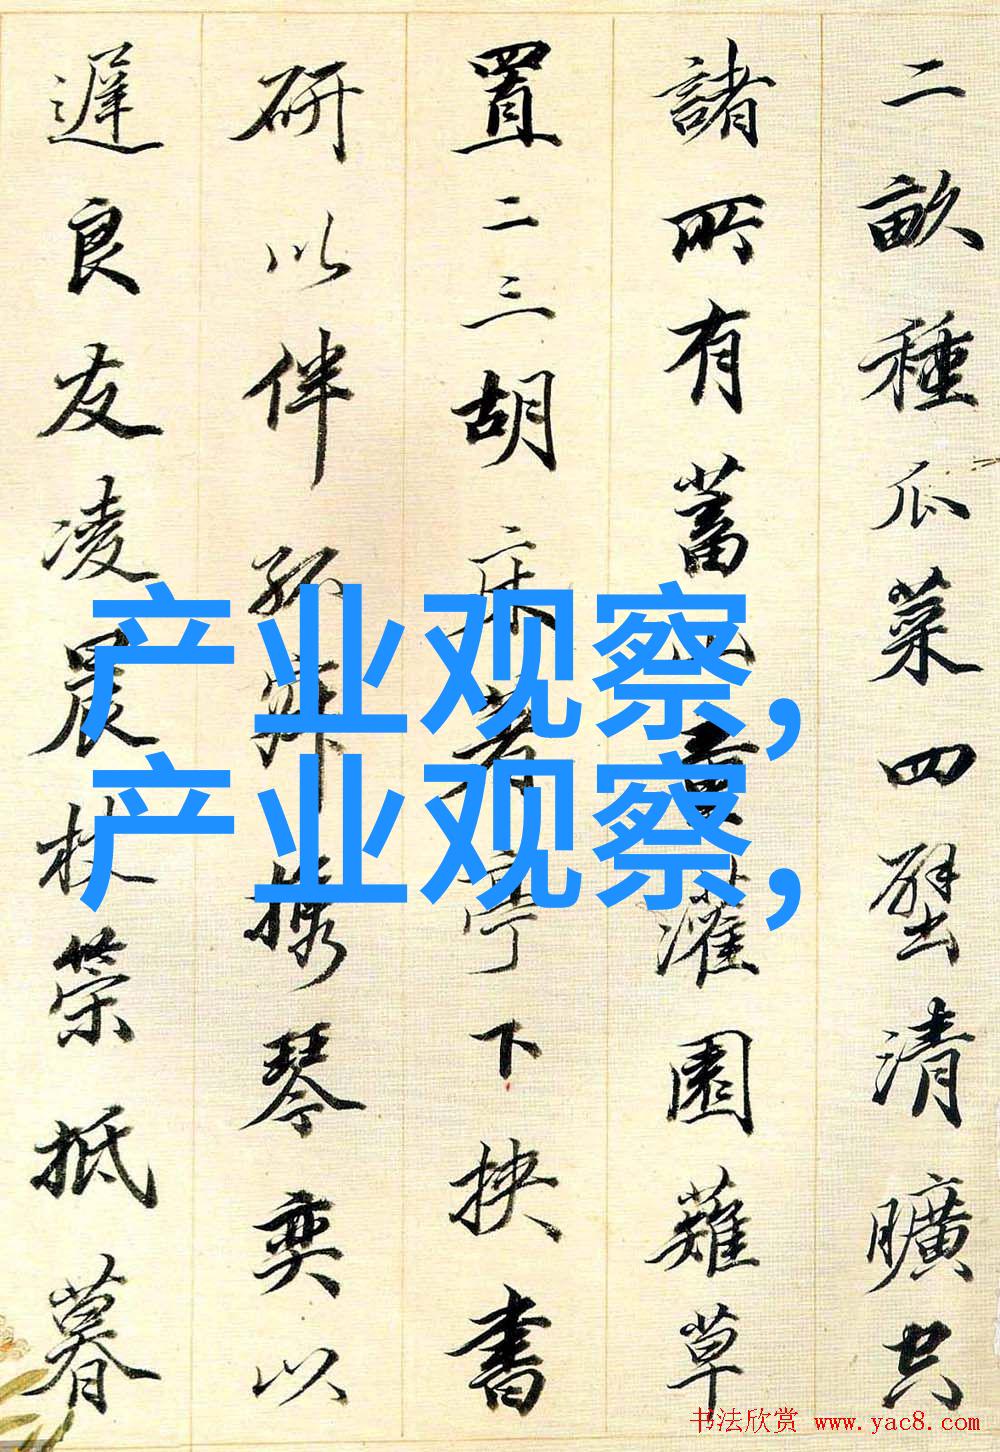 二畝種瓜菜四壁清曠空
諸所有蓄山童灌園薙草
置二三胡床著亭下挾書
研以伴孤寂攜琴奕以
遲良友凌晨杖策抵暮
产业观察,
产业观察,
书法欣赏 www.yac8.com